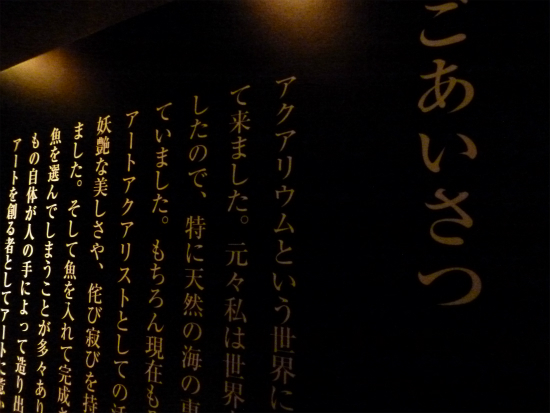 ごあいさつ
アクアリウムという世界に
て来ました。元々私は世界
したので、特に天然の海の
ていました。もちろん現在も
アートアクアリストとしての
妖艶な美しさや、侘び寂びを持
ました。そして魚を入れて完成
魚を選んでしまうことが多々あり
もの自体が人の手によって造り出
アートを創る者としてアートに惹か